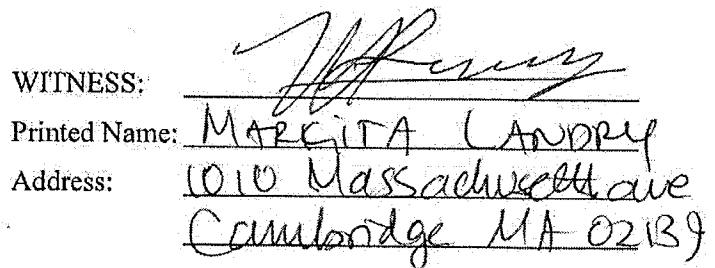 WITNESS:
Printed Name: MARGITA LANDRY
Address: 1010 Massachusett ave
Cambridge MA 02139